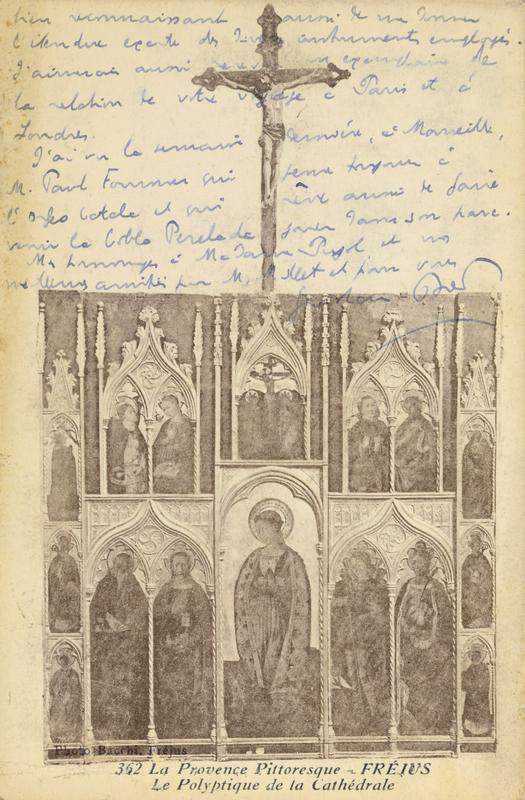 bien reconnaissant aussi de me donner
l'étendue exacte des divers instruments employés.
J'aimerais aussi exemplaire de
la relation de votre voyage à Paris et à
Londres.
J'ai vu la semaine dernière, à Marseille,
M. Paul Fournier qui pense toujours à
et qui rêve aussi de faire
venir la Cobla Perelada jouer dans son parc.
Mes hommages à Madame Pujol et mes
meilleures amitiés pour M. Millet et pour vous
Photo Bacchi, Fréjus
362 La Provence Pittoresque - FRÉJUS
Le Polyptique de la Cathédrale